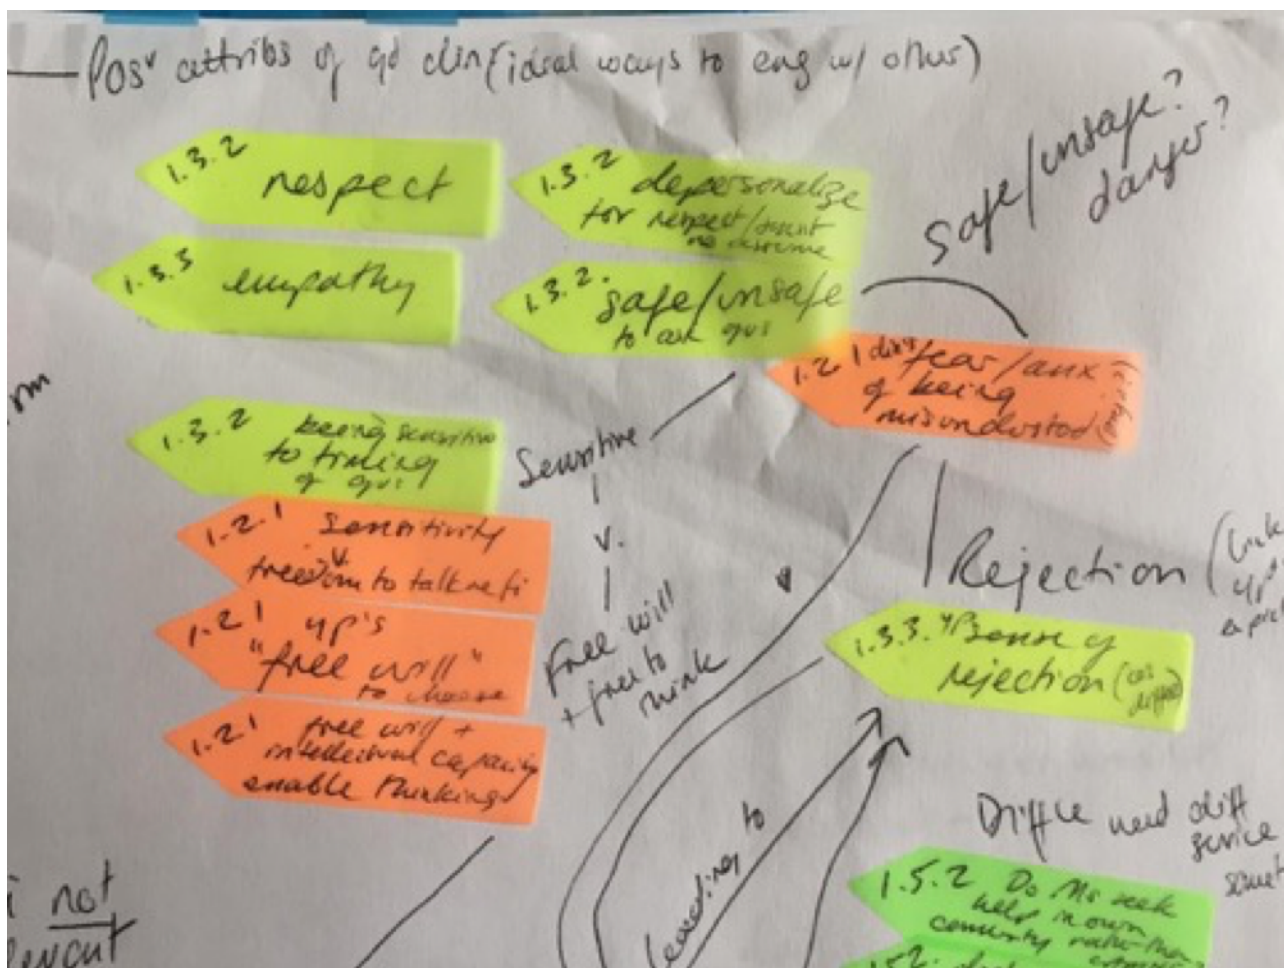 Posv attribs of gd clin (ideal ways to eng w/ other)
Safe/unsafe?
danger?
1.3.2 respect
1.3.2 depersonalize
for respect/
1.3.3 empathy
1.3.2. safe/unsafe
to ask qus
1.2.1 fear/anx
of being
misunderstood
1.3.2 being sensitive
to timing
of qus
Sensitive
v.
Free will
+ free to
think
1.2.1 sensitivity
v.
freedom to talk
1.2.1 yp's
"free will"
to choose
1.2.1 free will +
intellectual capacity
enable thinking
Rejection
1.3.3. YP sense of
rejection
leading to
need diff
service
1.5.2 Do Ms seek
help in own
community rather than
1.5.2.
not